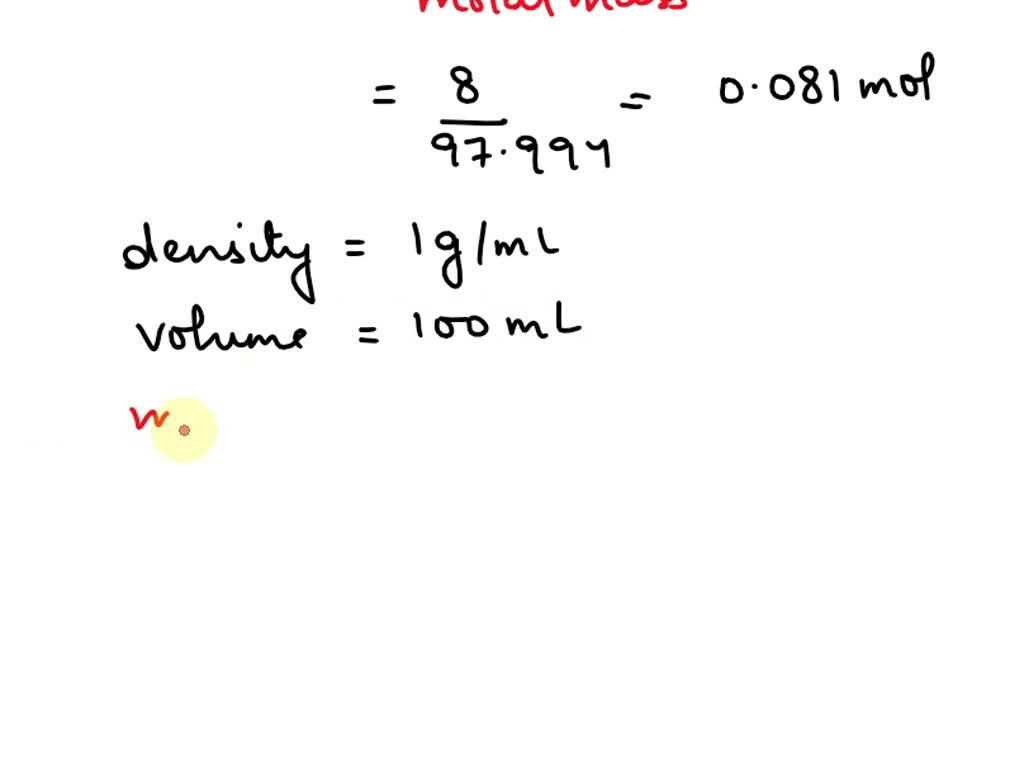 molar mass
= 8 / 97.994 = 0.081 mol
density = 1g/mL
volume = 100 mL